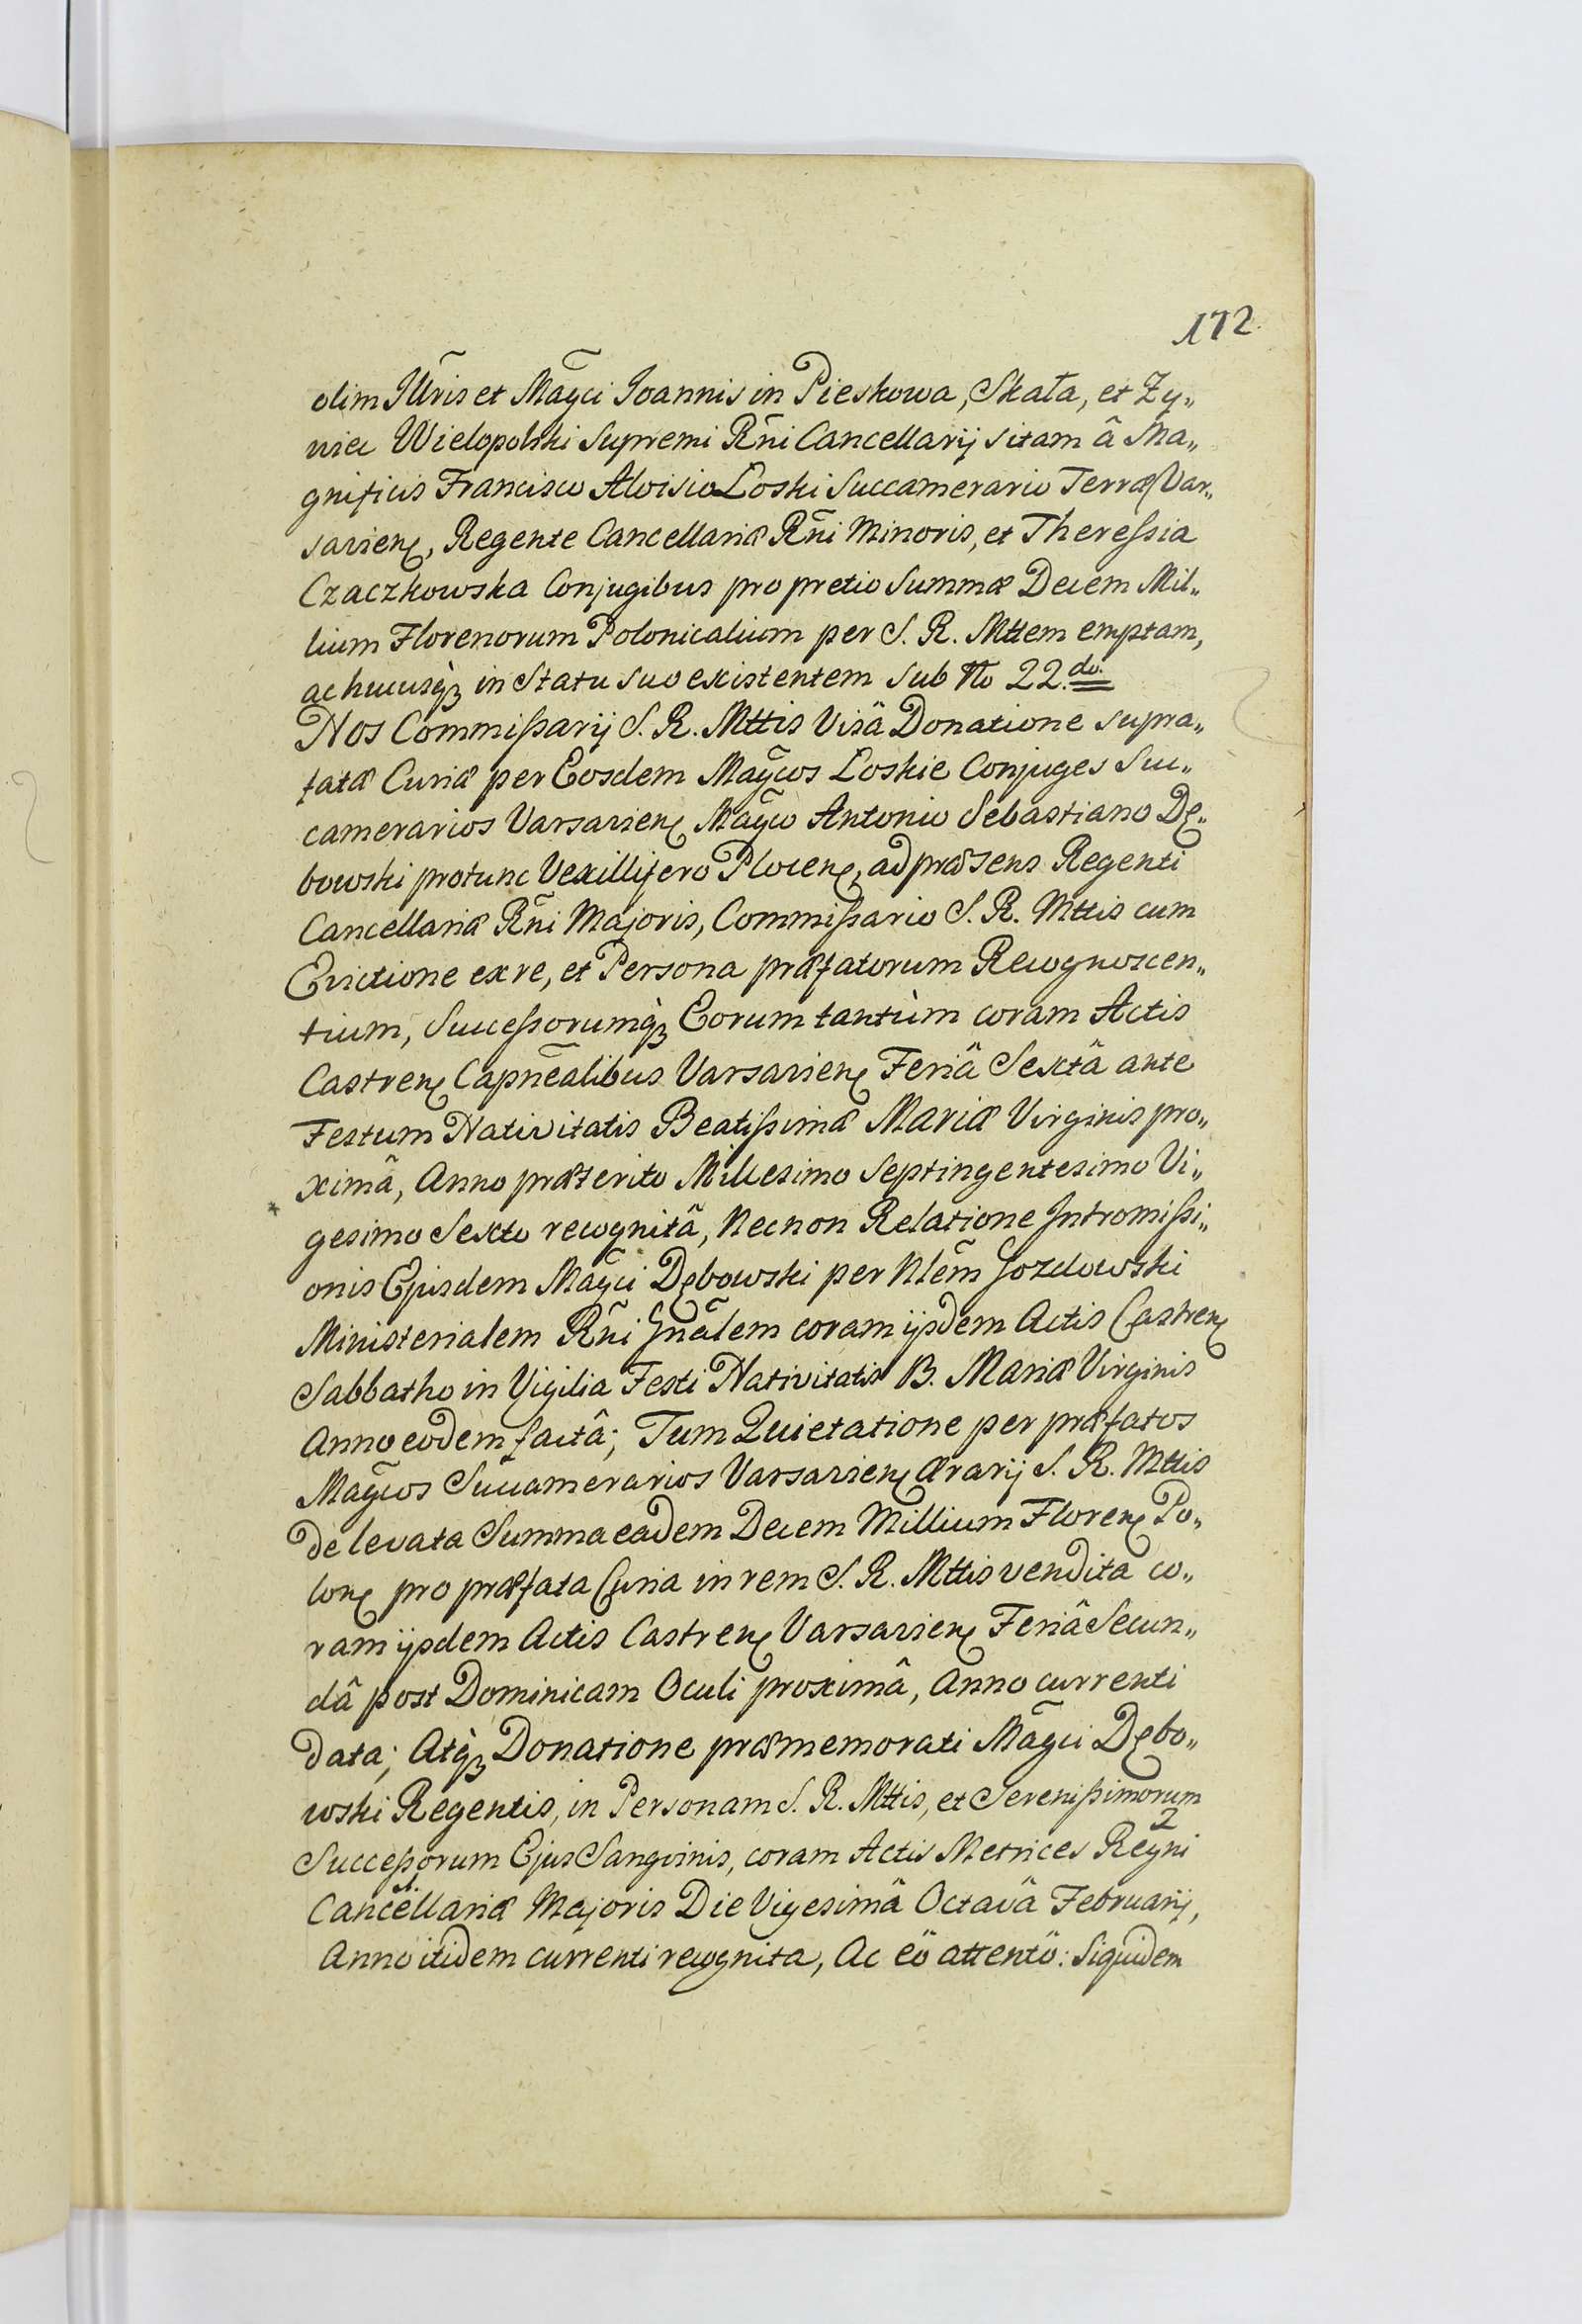 172
olim Illr̃is et Magc̃i Ioannis in Pieskowa, Skała, et Zy„
wiec Wielopolski Supremi Rñi Cancellarij sitam â Ma„
gnificis Francisco Aloisio Loski Succamerario Terræ Var„
savien, Regente Cancellariæ Rñi Minoris, et Theressia
Czaczkowska Conjugibus pro pretio Summæ Decem Mil„
lium Florenorum Polonicalium per S. R. Mttem emptam,
ac hucusq̀ꝫ in Statu suo existentem sub No 22.do.
Nos Commissarij S. R. Mttis Visâ Donatione supra„
fatæ Curiæ per Eosdem Magc̃os Loskie Conjuges Suc„
camerarios Varsavien Magc̃o Antonio Sebastiano Dę„
bowski protunc Vexillifero Plocen, ad præsens Regenti
Cancellariæ Rñi Majoris, Commissario S. R. Mttis cum
Evictione ex re, et Persona præfatorum Recognoscen„
tium, Successorumq̀ꝫ Eorum tantùm coram Actis
Castren Capnẽalibus Varsavien Feriâ Sextâ ante
Festum Nativitatis Beatissimæ Mariæ Virginis pro„
ximâ, Anno præterito Millesimo Septingentesimo Vi„
gesimo Sexto recognitâ, Necnon Relatione Intromissi„
onis Ejusdem Magc̃i Dębowski per Nlem̃ Gozdowski
Ministerialem Rñi Gnãlem coram ijsdem Actis Castren
Sabbatho in Vigilia Festi Nativitatis B. Mariæ Virginis
Anno eodem factâ; Tum Quietatione per præfatos
Magc̃os Succamerarios Varsavien Ærarij S. R. Mttis
de levata Summa eadem Decem Millium Floren Po„
lon pro præfata Curia in rem S. R. Mttis vendita co„
ram ijsdem Actis Castren Varsavien Feriâ Secun„
dâ post Dominicam Oculi proximâ, Anno currenti
data; Atq̀ꝫ Donatione præmemorati Magc̃i Dębo„
wski Regentis, in Personam S. R. Mttis, et Serenissimorum
Successorum Ejus Sangvinis, coram Actis Metrices Regni
Cancellariæ Majoris Die Vigesimâ Octavâ Februarij,
Anno itidem currenti recognita, Ac eö attentö: Siquidem